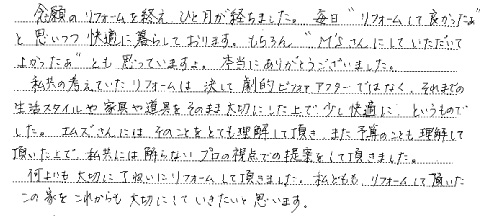 念願のリフォームを終え ひと月が経ちました。毎日"リフォームして良かったぁ"
と思いつつ 快適に暮らしております。もちろん "M'Sさんにしていただいて
よかったぁ"とも思っていますよ。本当にありがとうございました。
私共の考えていたリフォームは 決して 劇的ビフォアアフターではなく、それまでの
生活スタイルや家具や道具をそのまま大切にした上で少し快適に、というもので
した。エムズさんには そのことをとても理解して頂き、また予算のことも理解して
頂いた上で、私共には解らないプロの視点での提案をして頂きました。
何よりも大切にていねいにリフォームして頂きました。私どもも、リフォームして頂いた
この家をこれからも大切にしていきたいと思います。